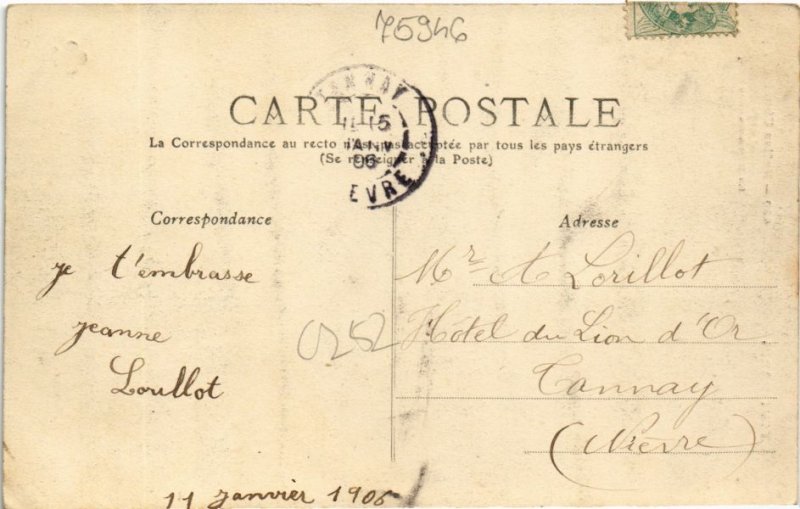 75946
CARTE POSTALE
La Correspondance au recto n'est pas acceptée par tous les pays étrangers
(Se renseigner à la Poste)
TANNAY
15
JANV
06
Correspondance
je t'embrasse
jeanne
Lorillot
11 janvier 1906
0252
Adresse
Mr A Lorillot
Hôtel du Lion d'Or
Tannay
(Nièvre)